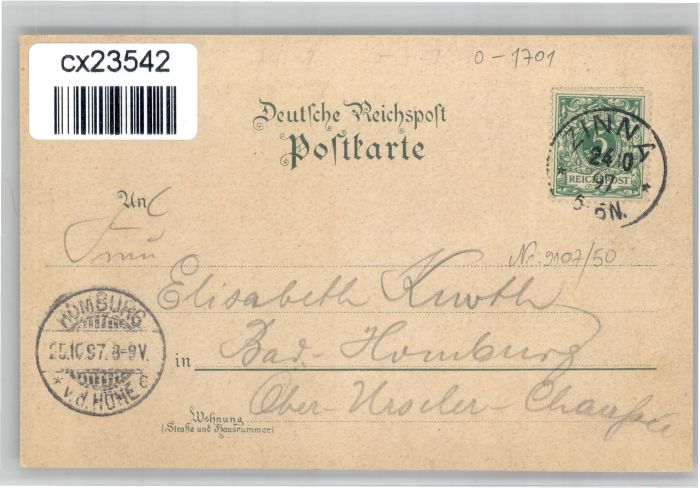 cx23542
0-1701
Deutsche Reichspost
Postkarte
5
REICHSPOST
ZINNA
24 10
97
5-6N.
An
Frau
Nr. 9107/50
Elisabeth Kurth
HOMBURG
25.10.97. 8-9V.
v.d. HÖHE
in Bad-Homburg
Ober-Urseler-Chaussee
Wohnung
(Straße und Hausnummer)